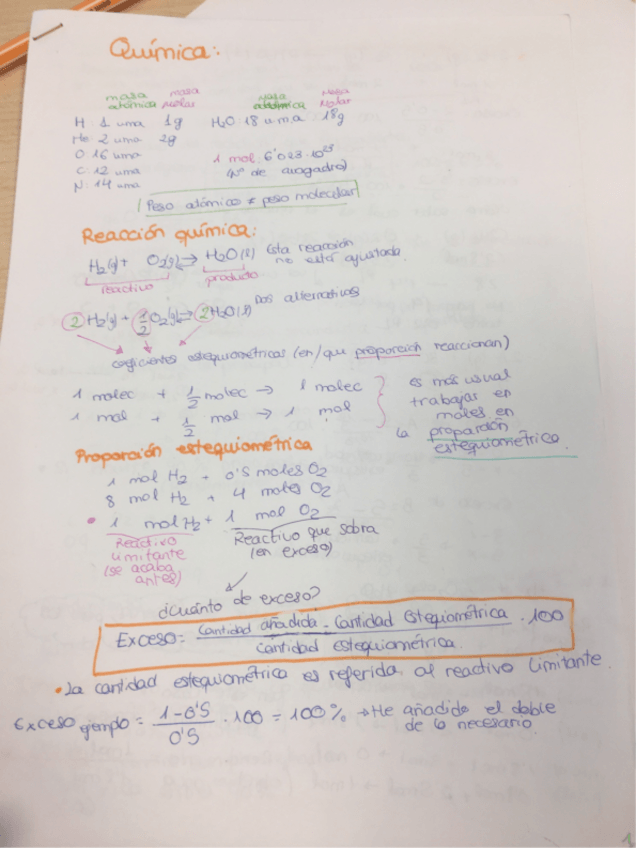 Química:
masa atómica masa Molar masa atómica masa Molar
H: 1 uma 1g H2O: 18 u.m.a 18g
He: 2 uma 2g
O: 16 uma 1 mol: 6'023·10²³
C: 12 uma (Nº de avogadro)
N: 14 uma
Peso atómico ≠ peso molecular
Reacción química:
H2(g) + O2(g) ⇄ H2O(l) Esta reacción no está ajustada.
reactivo producto
2 H2(g) + 1/2 O2(g) ⇄ 2 H2O(l) Dos alternativas
coeficientes estequiométricos (en/que proporción reaccionan)
1 molec + 1/2 molec → 1 molec
1 mol + 1/2 mol → 1 mol
es más usual
trabajas en
moles en
la proporción
estequiométrica.
Proporción estequiométrica
1 mol H2 + 0'5 moles O2
8 mol H2 + 4 moles O2
• 1 mol H2 + 1 mol O2
Reactivo limitante (se acaba antes)
Reactivo que sobra (en exceso)
¿Cuánto de exceso?
Exceso = Cantidad añadida - Cantidad Estequiométrica / Cantidad estequiométrica · 100
• La cantidad estequiométrica es referida al reactivo limitante.
Exceso ejemplo = 1-0'5 / 0'5 · 100 = 100% → He añadido el doble
de lo necesario.
1